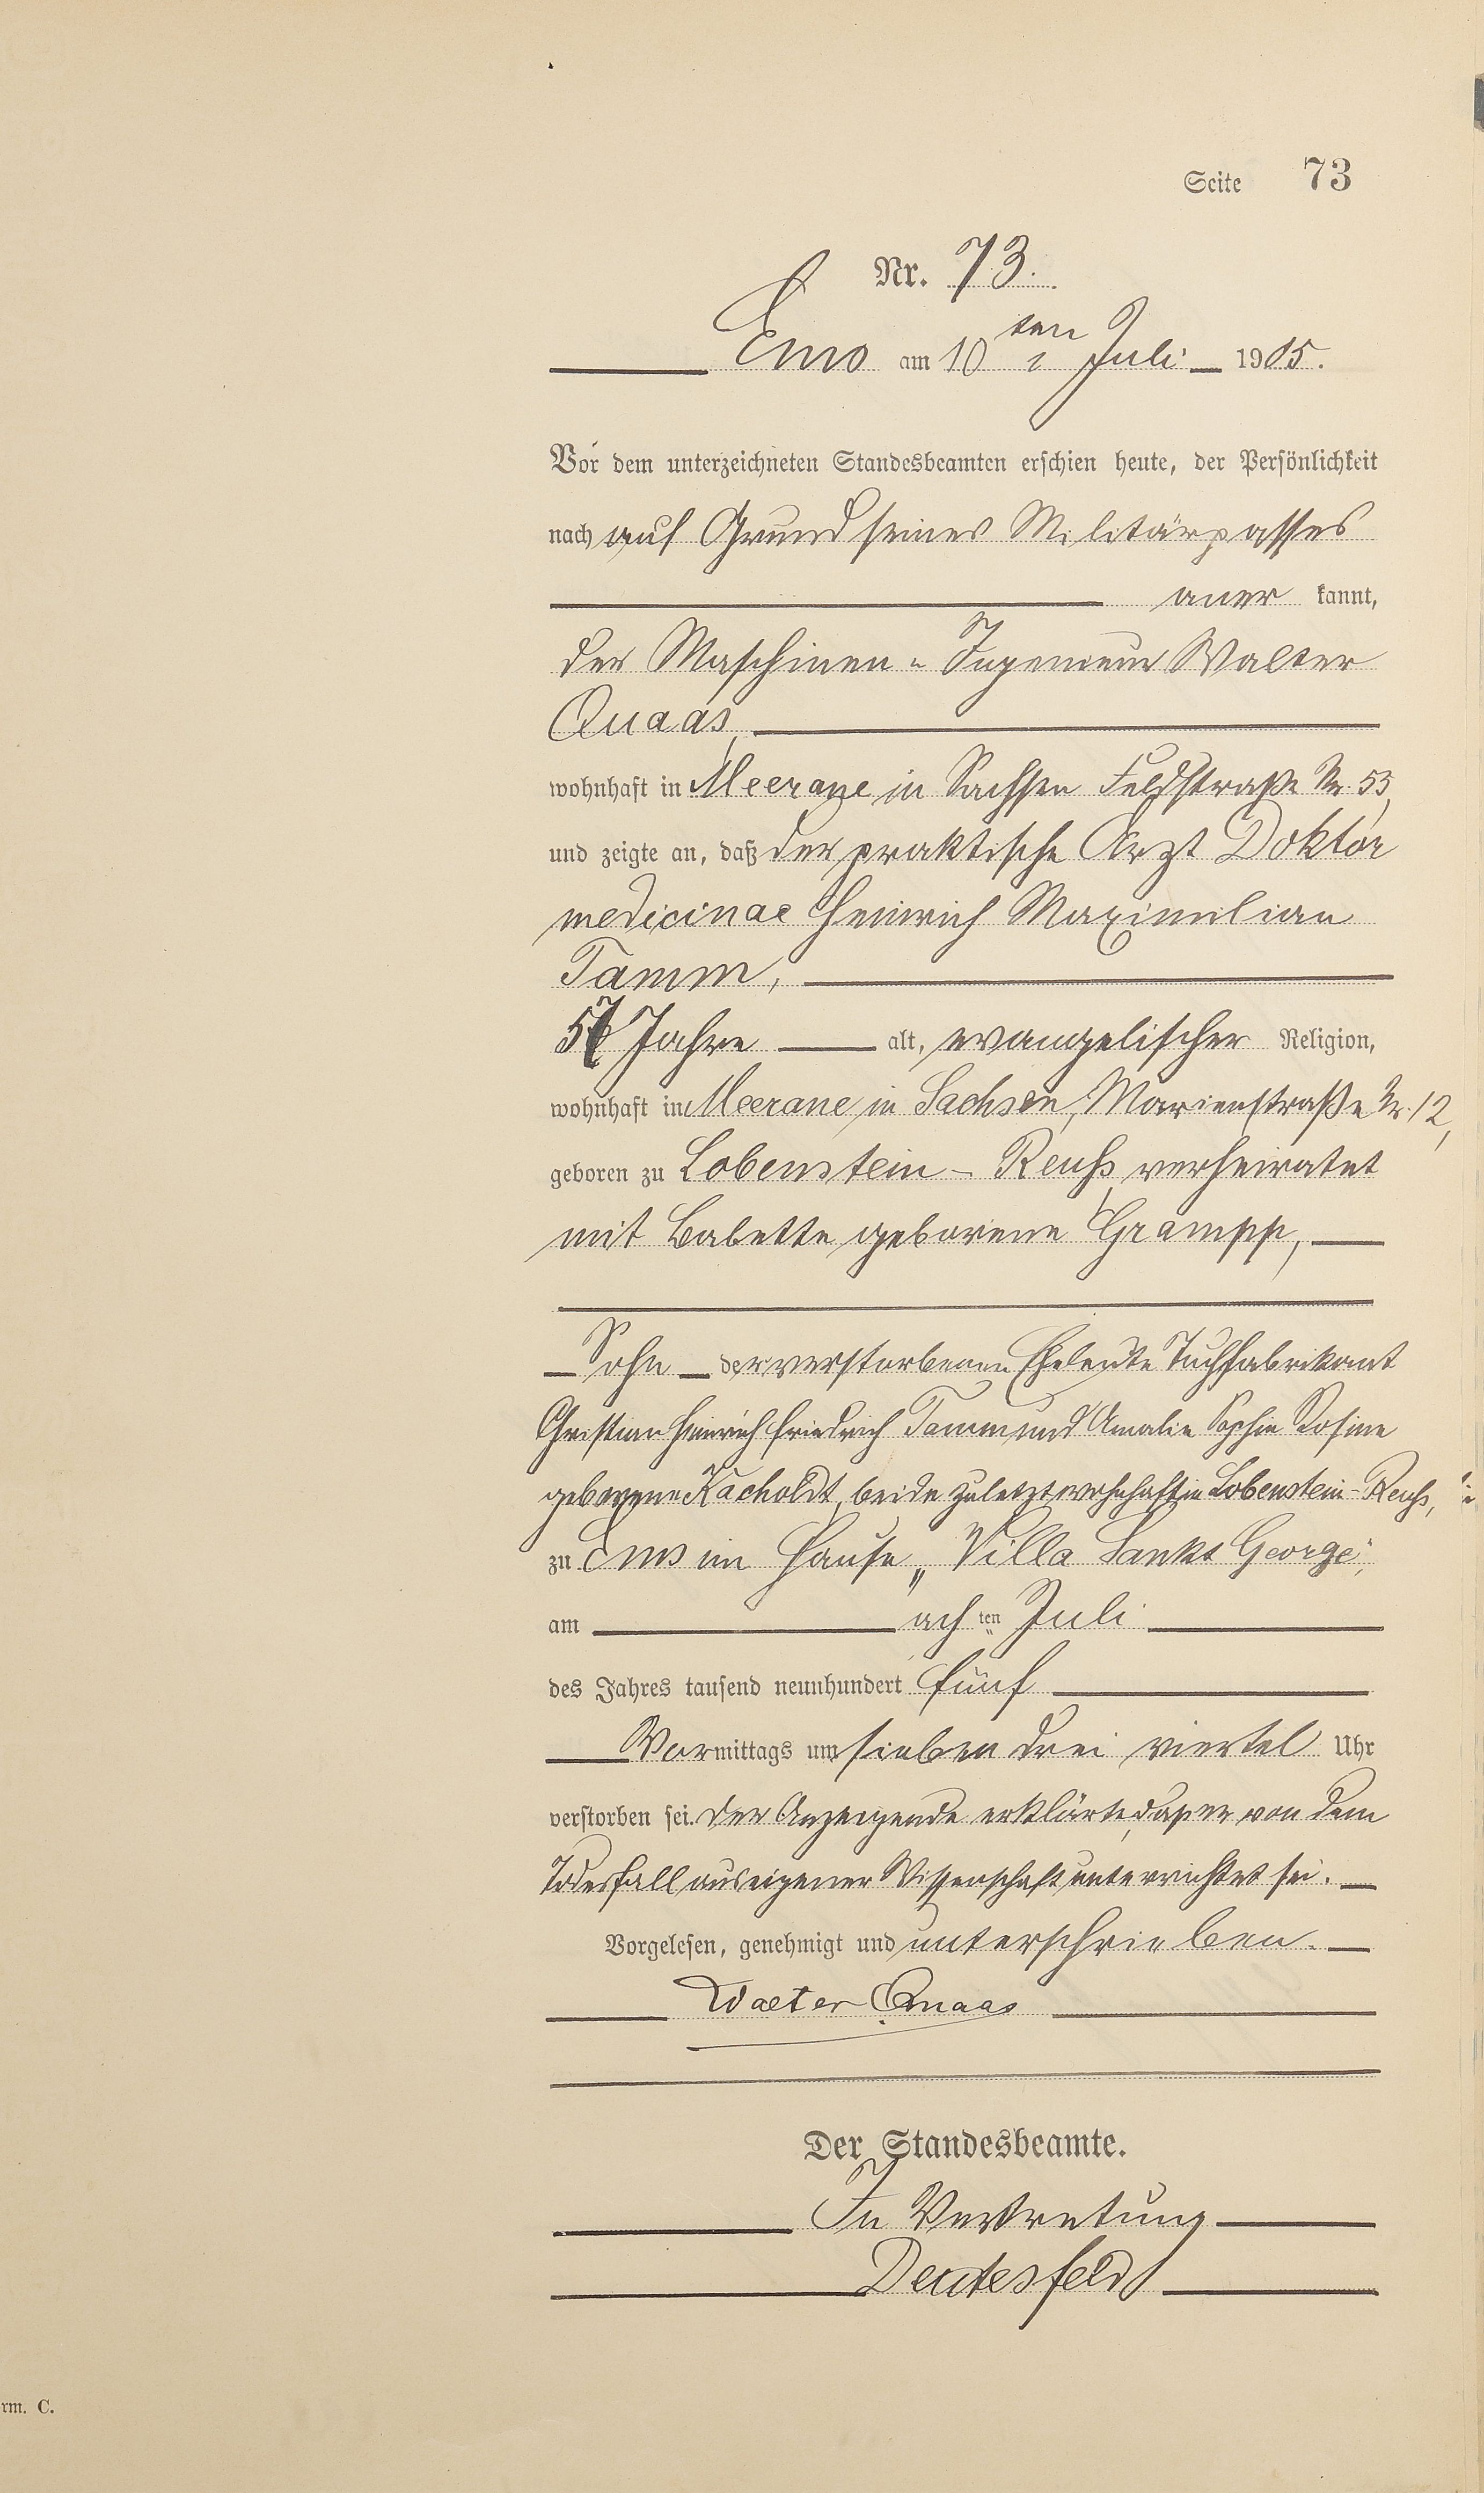 Seite 73
Nr. 73.
Ems am 10ten Juli 1905.
Vor dem unterzeichneten Standesbeamten erschien heute, der Persönlichkeit
nach auf Grund seines Militärpasses
aner kannt,
der Maschinen-Ingenieur Walter
Quaas,
wohnhaft in Meerane in Sachsen Feldstraße Nr. 53,
und zeigte an, daß der praktische Arzt Doktor
medicinae Heinrich Maximilian
Tamm,
57 Jahre alt, evangelischer Religion,
wohnhaft in Meerane in Sachsen, Marienstraße Nr. 12,
geboren zu Lobenstein-Reuß, verheiratet
mit Babette geborene Grampp,
Sohn der verstorbenen Eheleute Tuchfabrikant
Christian Heinrich Friedrich Tamm und Amalie Sophie Rosine
geborene Kacholdt, beide zuletzt wohnhaft in Lobenstein-Reuß,
zu Ems im Hause „Villa Sankt George",
am achten Juli
des Jahres tausend neunhundert fünf
Vormittags um sieben drei viertel Uhr
verstorben sei. Der Anzeigende erklärte, daß er von dem
Todesfall aus eigener Wissenschaft unterrichtet sei.
Vorgelesen, genehmigt und unterschrieben.
Walter Quaas
Der Standesbeamte.
In Vertretung
Deutesfeld
rm. C.